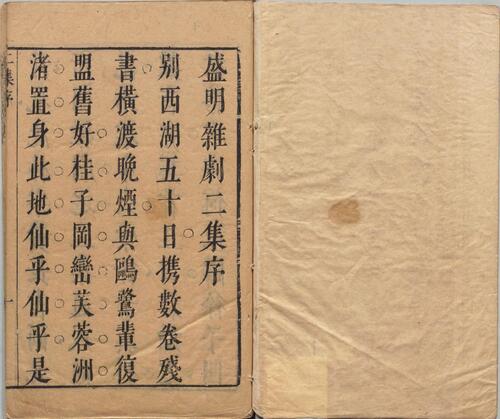 盛明雜劇二集序
别西湖五十日携數卷殘
書橫渡晚煙與鷗鷺輩復
盟舊好桂子岡巒芙蓉洲
渚置身此地仙乎仙乎是
二集序
一